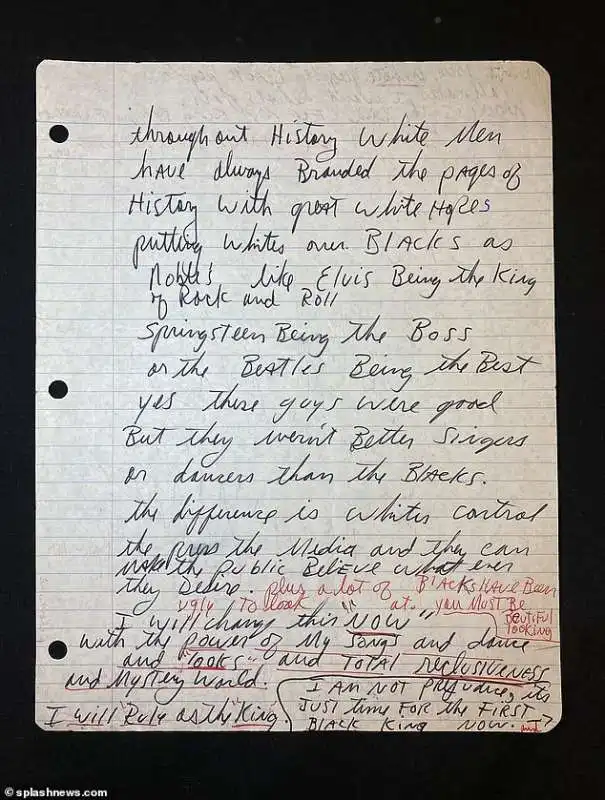 throughout History white Men
have always Branded the pages of
History with great white Hopes
putting whites over BLACKS as
Nobles like Elvis Being the King
of Rock and Roll
Springsteen Being the Boss
or the BEATLES Being the Best
yes these guys were good
But they weren't Better Singers
or dancers than the BLACKS.
the difference is whites control
the press the Media and they can
MAKE the Public BELIEVE what ever
they Desire. plus a lot of BLACKS HAVE Been
ugly TO look at. you MUST Be
BEUTIFUL
looking
I will change this "NOW"
with the power of My songs and dance
and "looks" and TOTAL reclusiveness
and Mystery world.
I will Rule as the King.
I AM NOT PREJUDICE, its
JUST time FOR the FIRST
BLACK King NOW.
splashnews.com